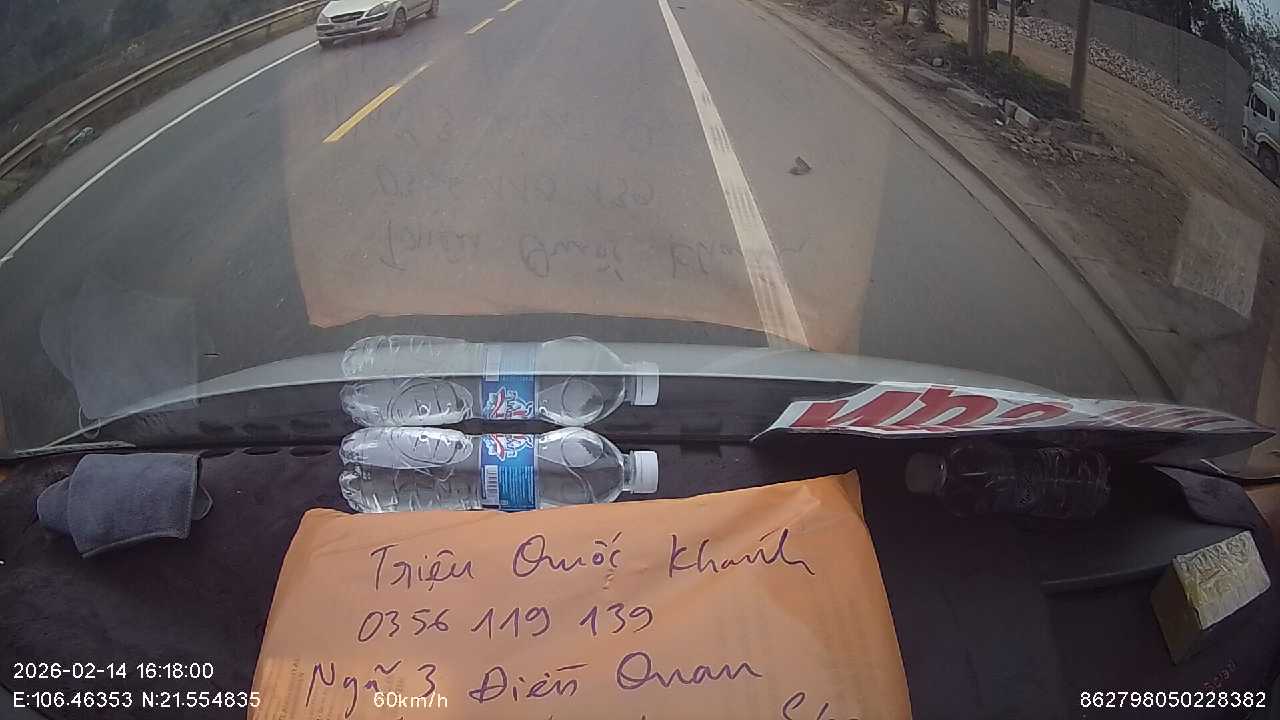 Triệu Quốc Khánh
0356 119 139
Ngã 3 Điềm Quan
2026-02-14 16:18:00
E:106.46353 N:21.554835
60km/h
862798050228382